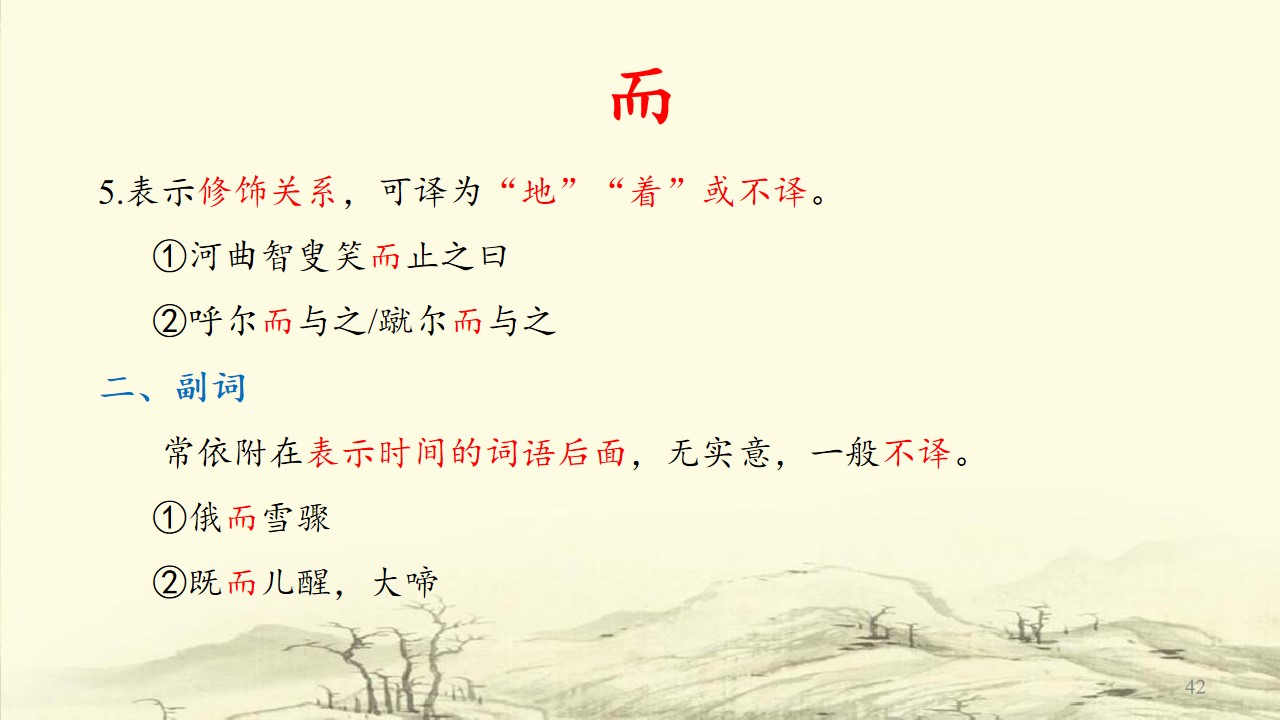 而
5.表示修饰关系，可译为“地”“着”或不译。
①河曲智叟笑而止之曰
②呼尔而与之/蹴尔而与之
二、副词
常依附在表示时间的词语后面，无实意，一般不译。
①俄而雪骤
②既而儿醒，大啼
42